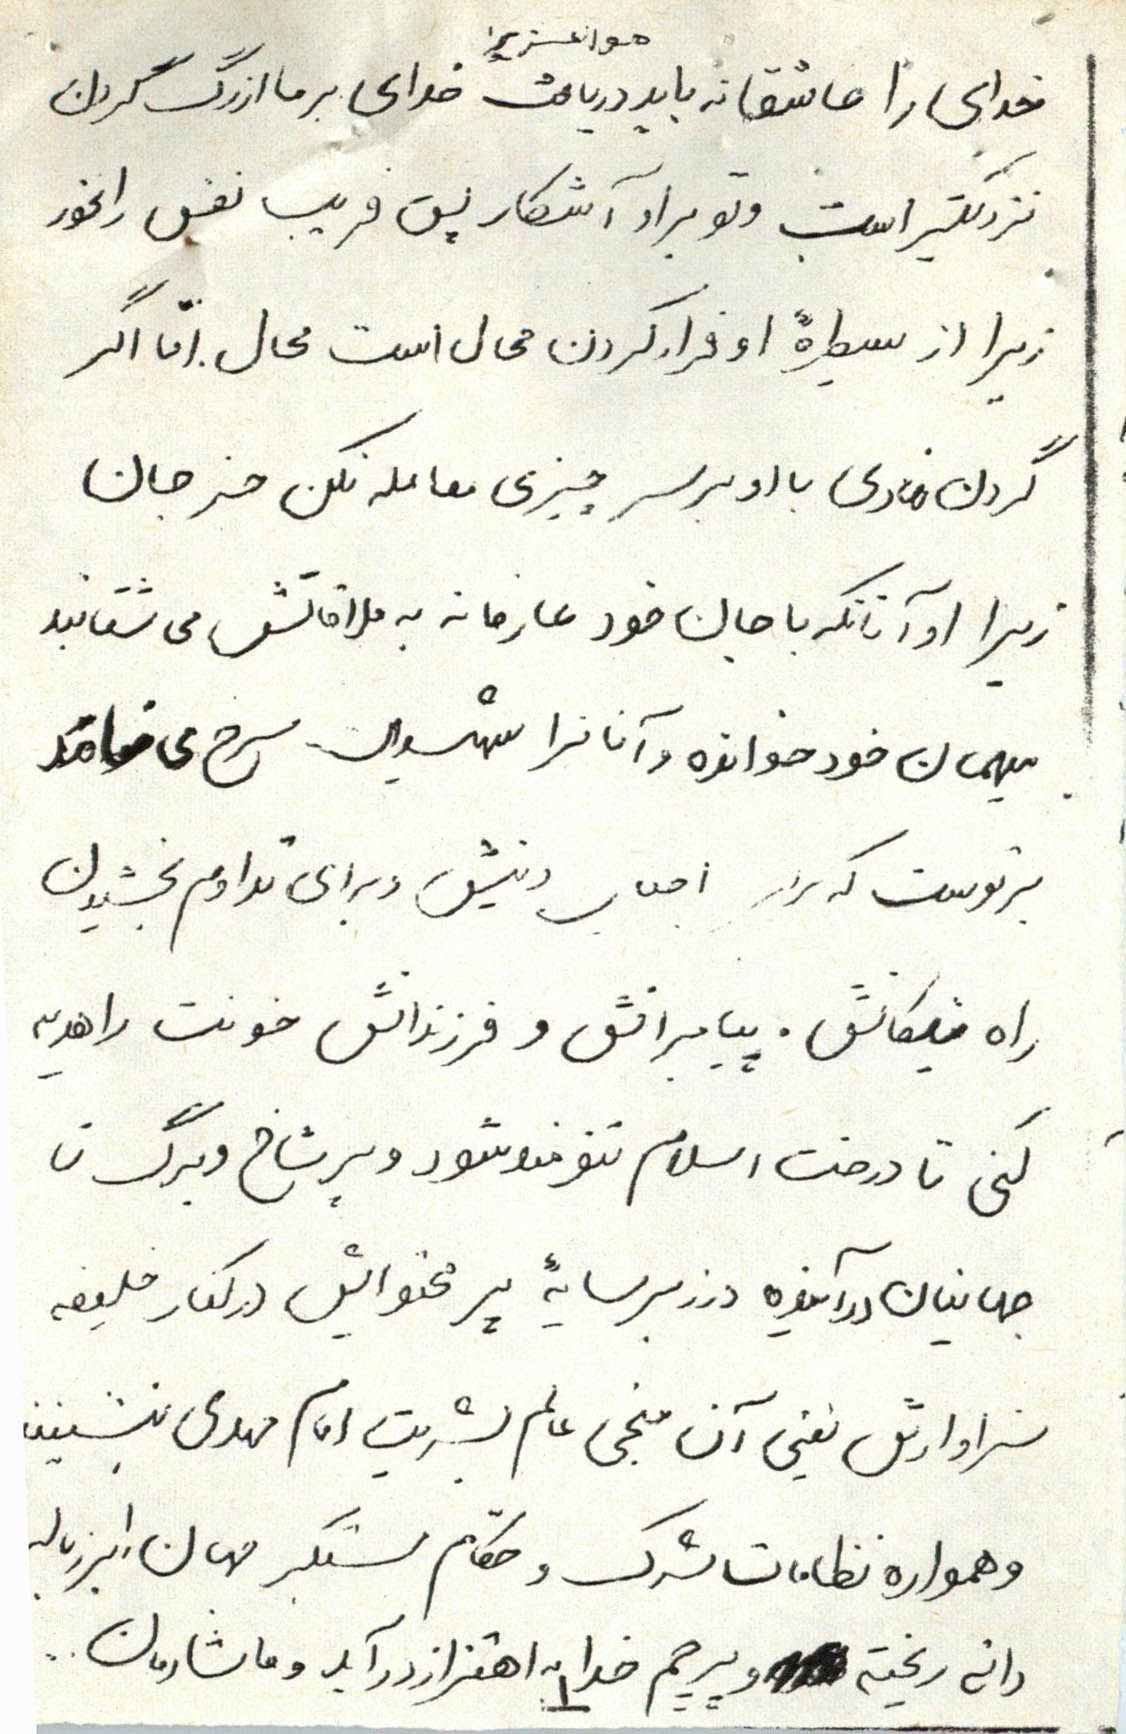 هوالعزیز
خدای را عاشقانه باید دریافت خدای بر ما از رگ گردن
نزدیکتر است و تو بر او آشکار پس فریب نفس را نخور
زیرا از سیطرهٔ او فرار کردن محال است محال. امّا اگر
گردن نهادی با او بر سر چیزی معامله نکن جز جان
زیرا او آنانکه با جان خود عارفانه به ملاقاتش می شتابند
میهمان خود خوانده و آنانرا شهیدان سرخ می نامد
بر توست که برای احیای دینش و برای تداوم بخشیدن
راه نیکانش. پیامبرانش و فرزندانش خونت را هدیه
کنی تا درخت اسلام تنومند شود و پر شاخ و برگ تا
جهانیان در آینده در زیر سایهٔ پر محتوایش در کنار خلیفه
سزاوارش یعنی آن منجی عالم بشریت امام مهدی بنشینند
و همواره نظامات شرک و حکّام مستکبر جهان را بزباله
دانی ریخته و پرچم خدا به اهتزاز در آید و ما شادمان..
۱